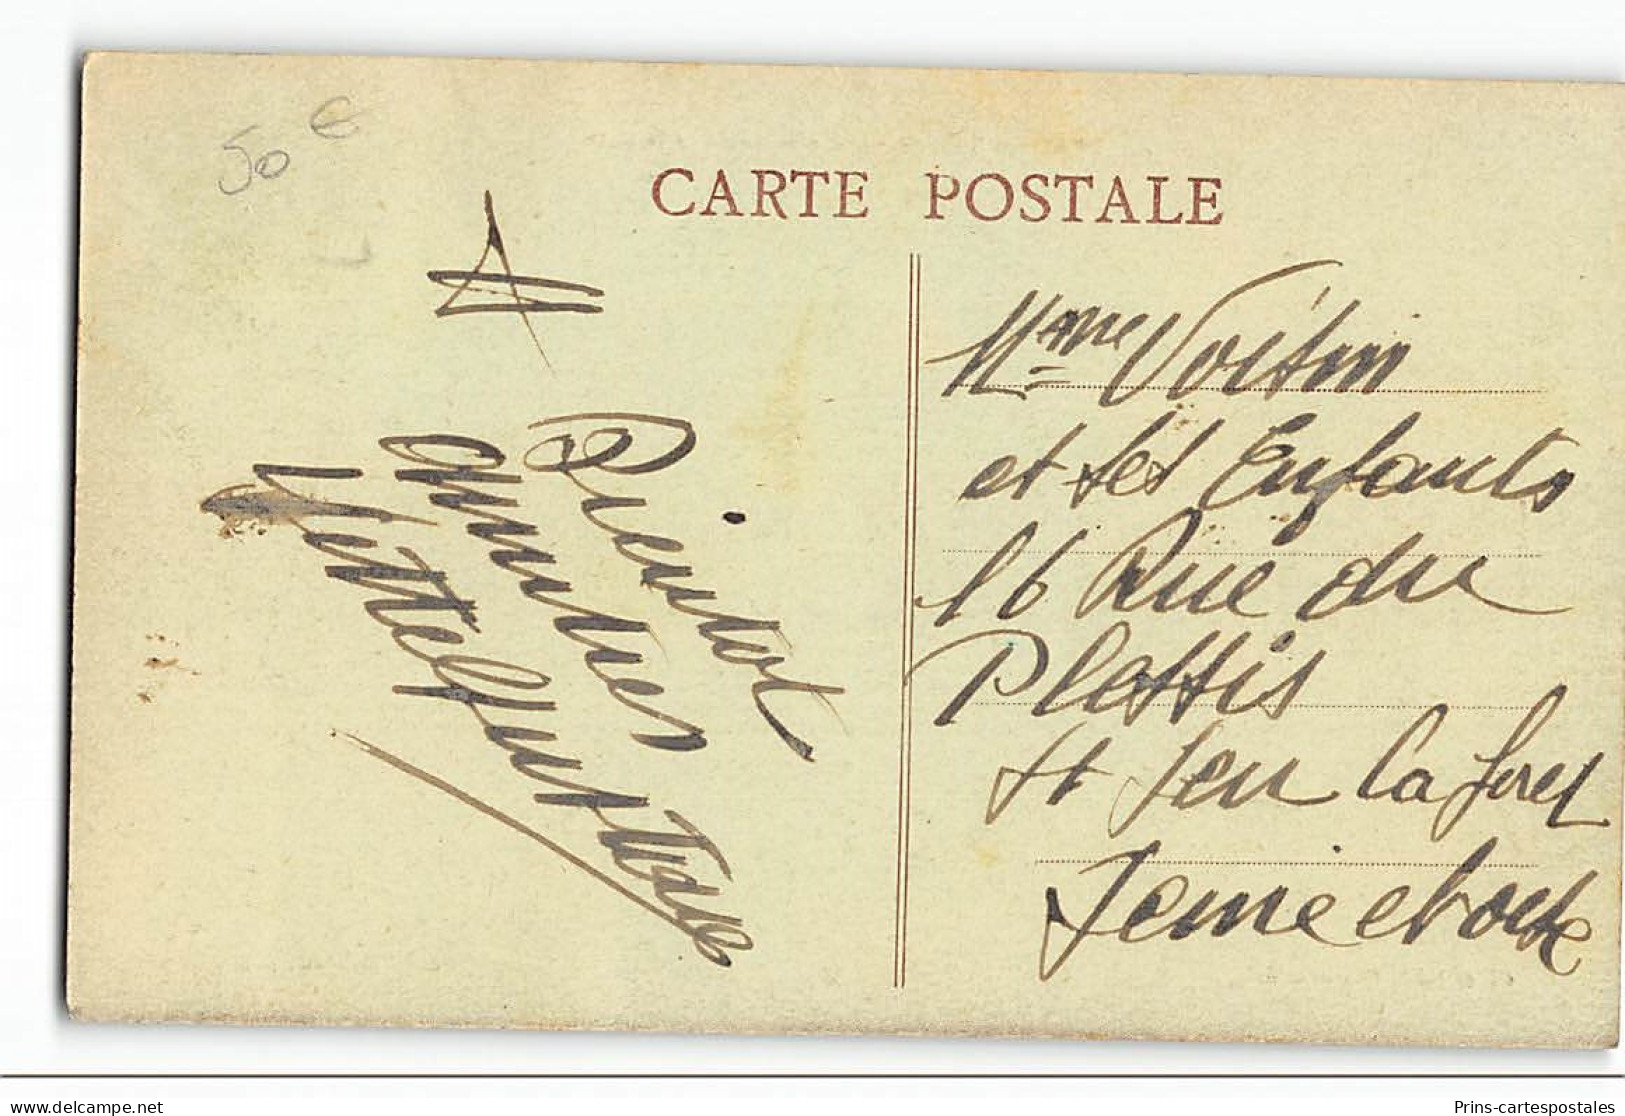 50 €
CARTE POSTALE
A
Bientot
amities
Mme Voisin
et ses Enfants
16 Rue du
Plessis
St Leu La foret
Seine et oise
delcampe.net
Prins-cartespostales